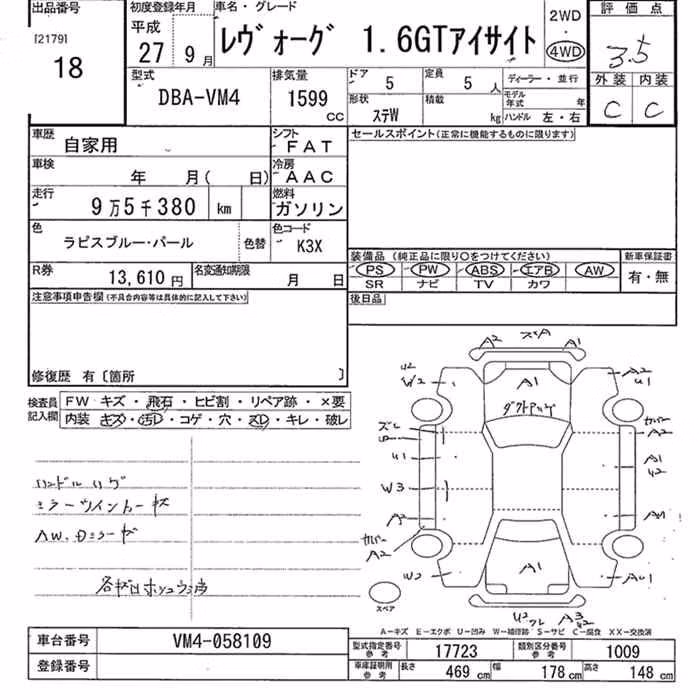 出品番号
[2179]
18
初度登録年月
平成
27 9月
車名・グレード
レヴォーグ 1.6GTアイサイト
2WD
4WD
評価点
3.5
外装 内装
C C
型式
DBA-VM4
排気量
1599
CC
ドア
5
定員
5
人
形状
ステW
積載
kg
ディーラー・並行
モデル年式
年
ハンドル 左・右
車歴
自家用
シフト
FAT
セールスポイント(正常に機能するものに限ります)
車検
年 月( 日)
冷房
AAC
走行
9万5千380 km
燃料
ガソリン
色
ラピスブルー・パール
色替
色コード
K3X
R券
13,610円
名変通知期限
月 日
装備品 (純正品に限り○をつけてください)
新車保証書
PS PW ABS エアB AW
有・無
SR ナビ TV カワ
注意事項申告欄(不具合内容等は具体的に記入して下さい)
後日品
修復歴 有〔箇所 〕
検査員記入欄
FW キズ・飛石・ヒビ割・リペア跡・×要
内装 キズ・汚レ・コゲ・穴・スレ・キレ・破レ
ハンドルスレ
ミラーウインカーキズ
A2 A1
U2
W2
A1
A2
U1
A2
U1
A1
U2
W3
A2
A2
W2
A1
AU1
スペア
A-キズ E-エクボ U-凹み W-補修跡 S-サビ C-腐食 XX-交換済
車台番号
VM4-058109
登録番号
型式指定番号 参考
17723
類別区分番号 参考
1009
車庫証明用 参考
長さ 469 cm
幅 178 cm
高さ 148 cm